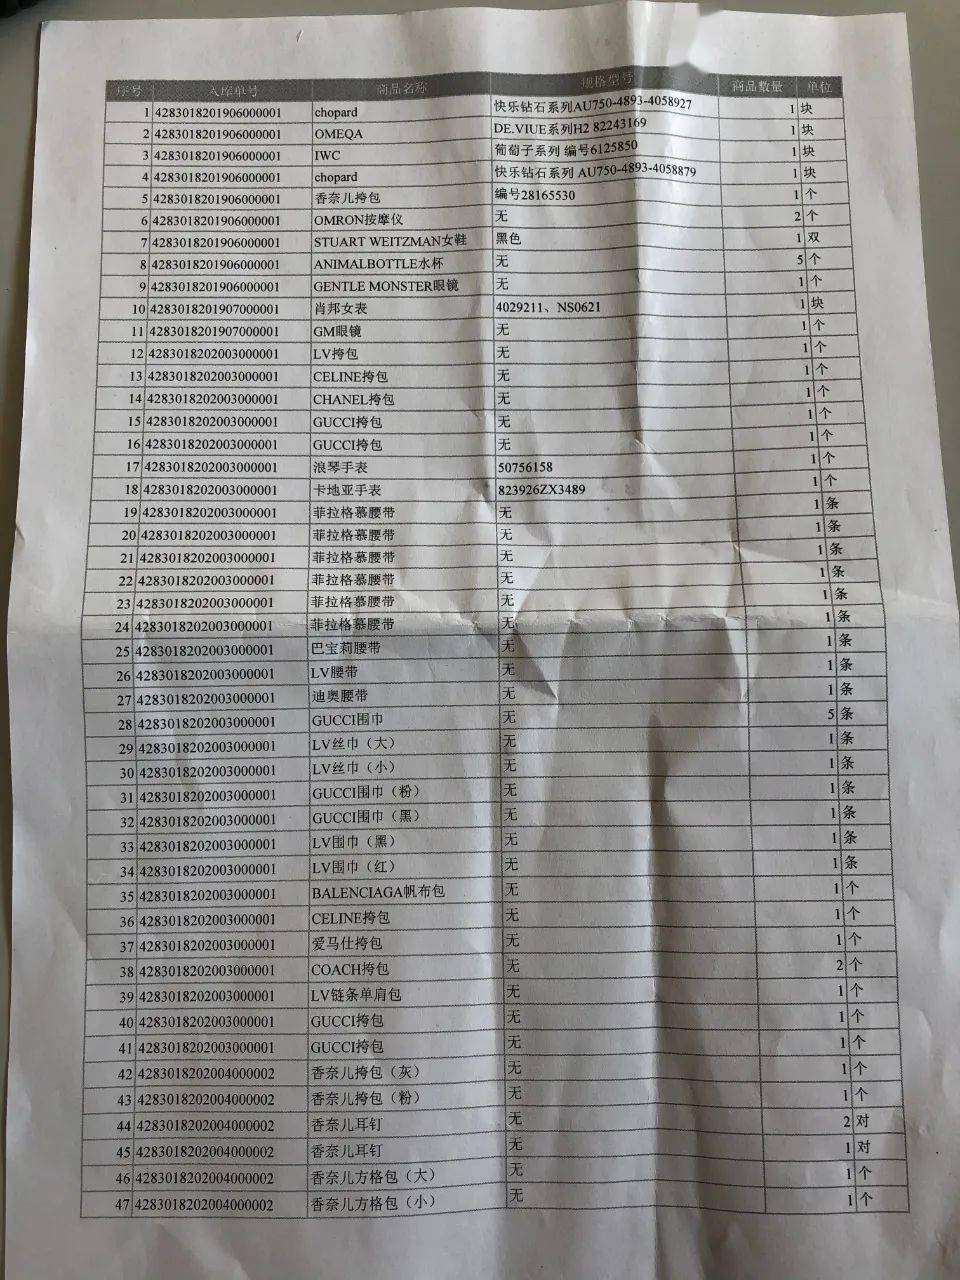 序号 入库单号 商品名称 规格型号 商品数量 单位
1 4283018201906000001 chopard 快乐钻石系列AU750-4893-4058927 1 块
2 4283018201906000001 OMEQA DE.VIUE系列H2 82243169 1 块
3 4283018201906000001 IWC 葡萄子系列 编号6125850 1 块
4 4283018201906000001 chopard 快乐钻石系列 AU750-4893-4058879 1 块
5 4283018201906000001 香奈儿挎包 编号28165530 1 个
6 4283018201906000001 OMRON按摩仪 无 2 个
7 4283018201906000001 STUART WEITZMAN女鞋 黑色 1 双
8 4283018201906000001 ANIMALBOTTLE水杯 无 5 个
9 4283018201906000001 GENTLE MONSTER眼镜 无 1 个
10 4283018201907000001 肖邦女表 4029211、NS0621 1 块
11 4283018201907000001 GM眼镜 无 1 个
12 4283018202003000001 LV挎包 无 1 个
13 4283018202003000001 CELINE挎包 无 1 个
14 4283018202003000001 CHANEL挎包 无 1 个
15 4283018202003000001 GUCCI挎包 无 1 个
16 4283018202003000001 GUCCI挎包 无 1 个
17 4283018202003000001 浪琴手表 50756158 1 个
18 4283018202003000001 卡地亚手表 823926ZX3489 1 个
19 4283018202003000001 菲拉格慕腰带 无 1 条
20 4283018202003000001 菲拉格慕腰带 无 1 条
21 4283018202003000001 菲拉格慕腰带 无 1 条
22 4283018202003000001 菲拉格慕腰带 无 1 条
23 4283018202003000001 菲拉格慕腰带 无 1 条
24 4283018202003000001 菲拉格慕腰带 无 1 条
25 4283018202003000001 巴宝莉腰带 无 1 条
26 4283018202003000001 LV腰带 无 1 条
27 4283018202003000001 迪奥腰带 无 1 条
28 4283018202003000001 GUCCI围巾 无 5 条
29 4283018202003000001 LV丝巾（大） 无 1 条
30 4283018202003000001 LV丝巾（小） 无 1 条
31 4283018202003000001 GUCCI围巾（粉） 无 1 条
32 4283018202003000001 GUCCI围巾（黑） 无 1 条
33 4283018202003000001 LV围巾（黑） 无 1 条
34 4283018202003000001 LV围巾（红） 无 1 条
35 4283018202003000001 BALENCIAGA帆布包 无 1 个
36 4283018202003000001 CELINE挎包 无 1 个
37 4283018202003000001 爱马仕挎包 无 1 个
38 4283018202003000001 COACH挎包 无 2 个
39 4283018202003000001 LV链条单肩包 无 1 个
40 4283018202003000001 GUCCI挎包 无 1 个
41 4283018202003000001 GUCCI挎包 无 1 个
42 4283018202004000002 香奈儿挎包（灰） 无 1 个
43 4283018202004000002 香奈儿挎包（粉） 无 1 个
44 4283018202004000002 香奈儿耳钉 无 2 对
45 4283018202004000002 香奈儿耳钉 无 1 对
46 4283018202004000002 香奈儿方格包（大） 无 1 个
47 4283018202004000002 香奈儿方格包（小） 无 1 个